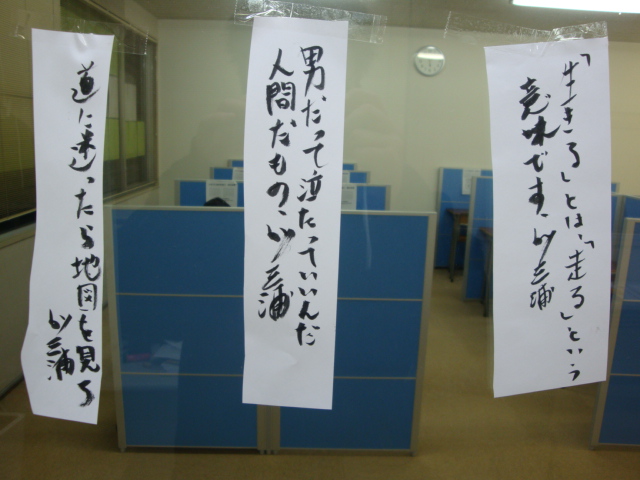 「生きる」とは、「走る」という
意味です。by三浦
男だって泣たっていいんだ
人間だもの、by三浦
道に迷ったら地図を見ろ
by三浦